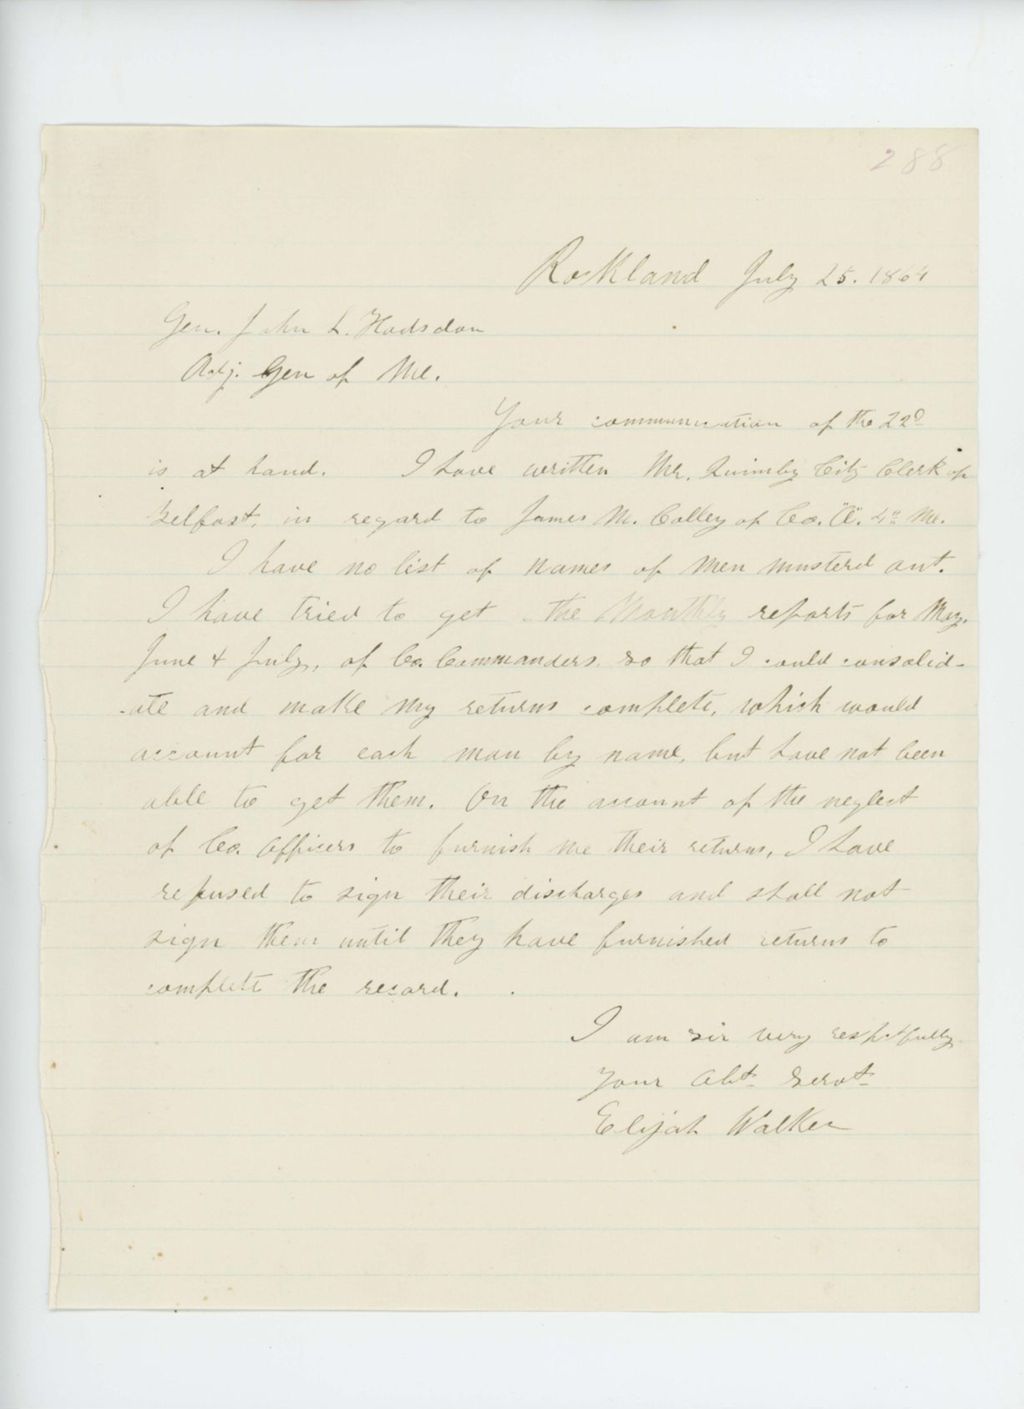 288
Rockland July 25. 1864
Gen. John L. Hodsdon
Adj. Gen of Me.
Your communication of the 22d
is at hand. I have written Mr. Quimby City Clerk of
Belfast, in regard to James M. Colley of Co. "A". 4th Me.
I have no list of names of men musterd out.
I have tried to get the Monthly reports for May,
June & July, of Co. Commanders, so that I could consolid-
-ate and make my returns complete, which would
account for each man by name, but have not been
able to get them. On the account of the neglect
of Co. Officers to furnish me their returns, I have
refused to sign their discharges and shall not
sign them until they have furnished returns to
complete the record.
I am sir very respctfully
Your Obt. Servt.
Elijah Walker